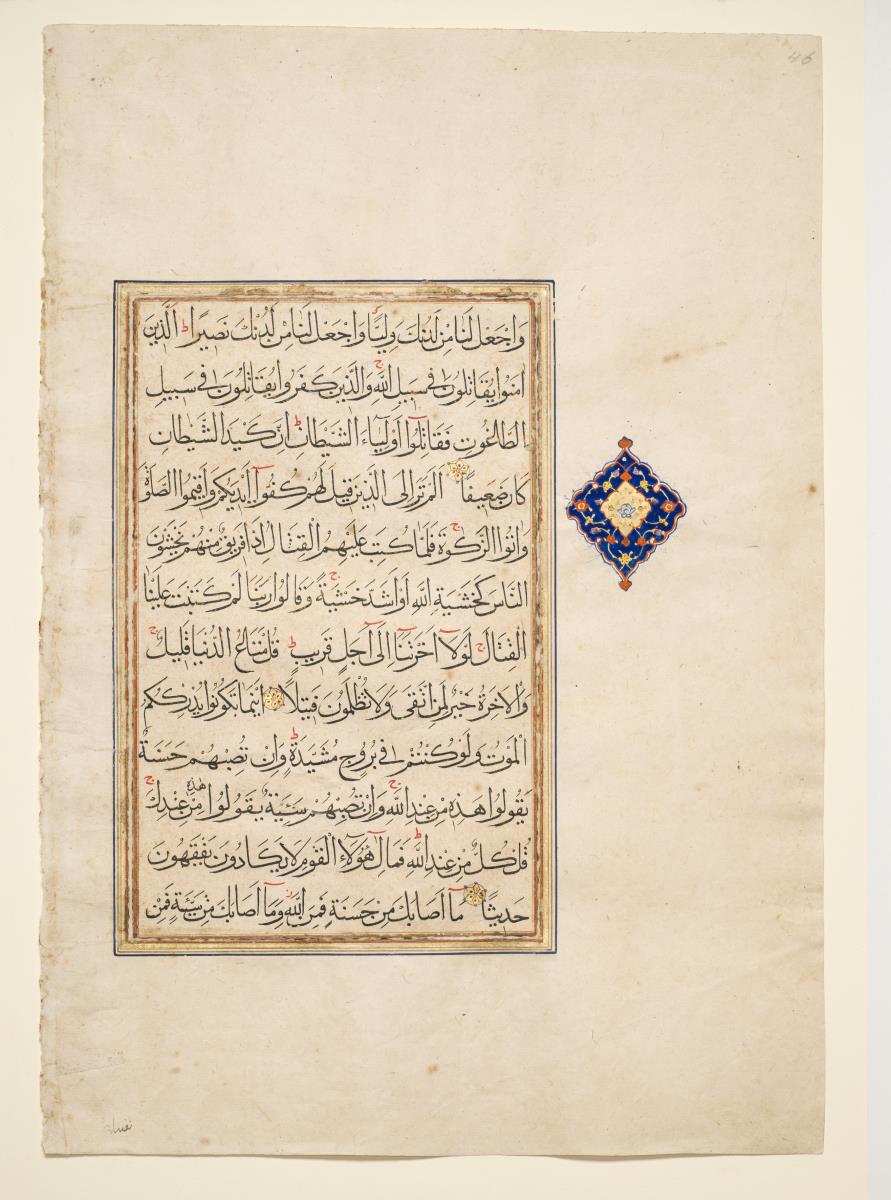 46
وَاجْعَلْ لَنَا مِنْ لَدُنْكَ وَلِيًّا وَاجْعَلْ لَنَا مِنْ لَدُنْكَ نَصِيرًا ط الَّذِينَ
اٰمَنُوا يُقَاتِلُونَ فِى سَبِيلِ اللّٰهِ ج وَالَّذِينَ كَفَرُوا يُقَاتِلُونَ فِى سَبِيلِ
الطَّاغُوتِ فَقَاتِلُوٓا اَوْلِيَآءَ الشَّيْطَانِ ط اِنَّ كَيْدَ الشَّيْطَانِ
كَانَ ضَعِيفًا اَلَمْ تَرَ اِلَى الَّذِينَ قِيلَ لَهُمْ كُفُّوٓا اَيْدِيَكُمْ وَاَقِيمُوا الصَّلٰوةَ
وَاٰتُوا الزَّكٰوةَ ج فَلَمَّا كُتِبَ عَلَيْهِمُ الْقِتَالُ اِذَا فَرِيقٌ مِنْهُمْ يَخْشَوْنَ
النَّاسَ كَخَشْيَةِ اللّٰهِ اَوْ اَشَدَّ خَشْيَةً ج وَقَالُوا رَبَّنَا لِمَ كَتَبْتَ عَلَيْنَا
الْقِتَالَ ج لَوْلَآ اَخَّرْتَنَآ اِلٰٓى اَجَلٍ قَرِيبٍ ط قُلْ مَتَاعُ الدُّنْيَا قَلِيلٌ ج
وَالْاٰخِرَةُ خَيْرٌ لِمَنِ اتَّقٰى وَلَا تُظْلَمُونَ فَتِيلًا اَيْنَمَا تَكُونُوا يُدْرِكْكُمُ
الْمَوْتُ وَلَوْ كُنْتُمْ فِى بُرُوجٍ مُشَيَّدَةٍ ط وَاِنْ تُصِبْهُمْ حَسَنَةٌ
يَقُولُوا هٰذِهِ مِنْ عِنْدِ اللّٰهِ ج وَاِنْ تُصِبْهُمْ سَيِّئَةٌ يَقُولُوا هٰذِهِ مِنْ عِنْدِكَ ج
قُلْ كُلٌّ مِنْ عِنْدِ اللّٰهِ ط فَمَالِ هٰٓؤُلَآءِ الْقَوْمِ لَا يَكَادُونَ يَفْقَهُونَ
حَدِيثًا مَآ اَصَابَكَ مِنْ حَسَنَةٍ فَمِنَ اللّٰهِ وَمَآ اَصَابَكَ مِنْ سَيِّئَةٍ فَمِنْ